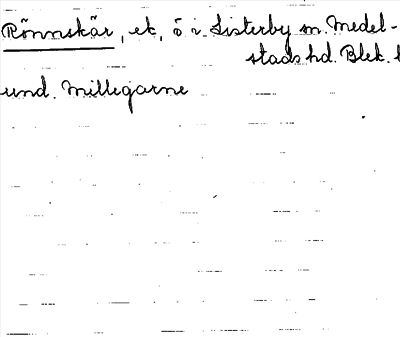 Rönnskär, ek, ö i Listerby sn. Medel-
stads hd. Blek. l
und. Millegarne